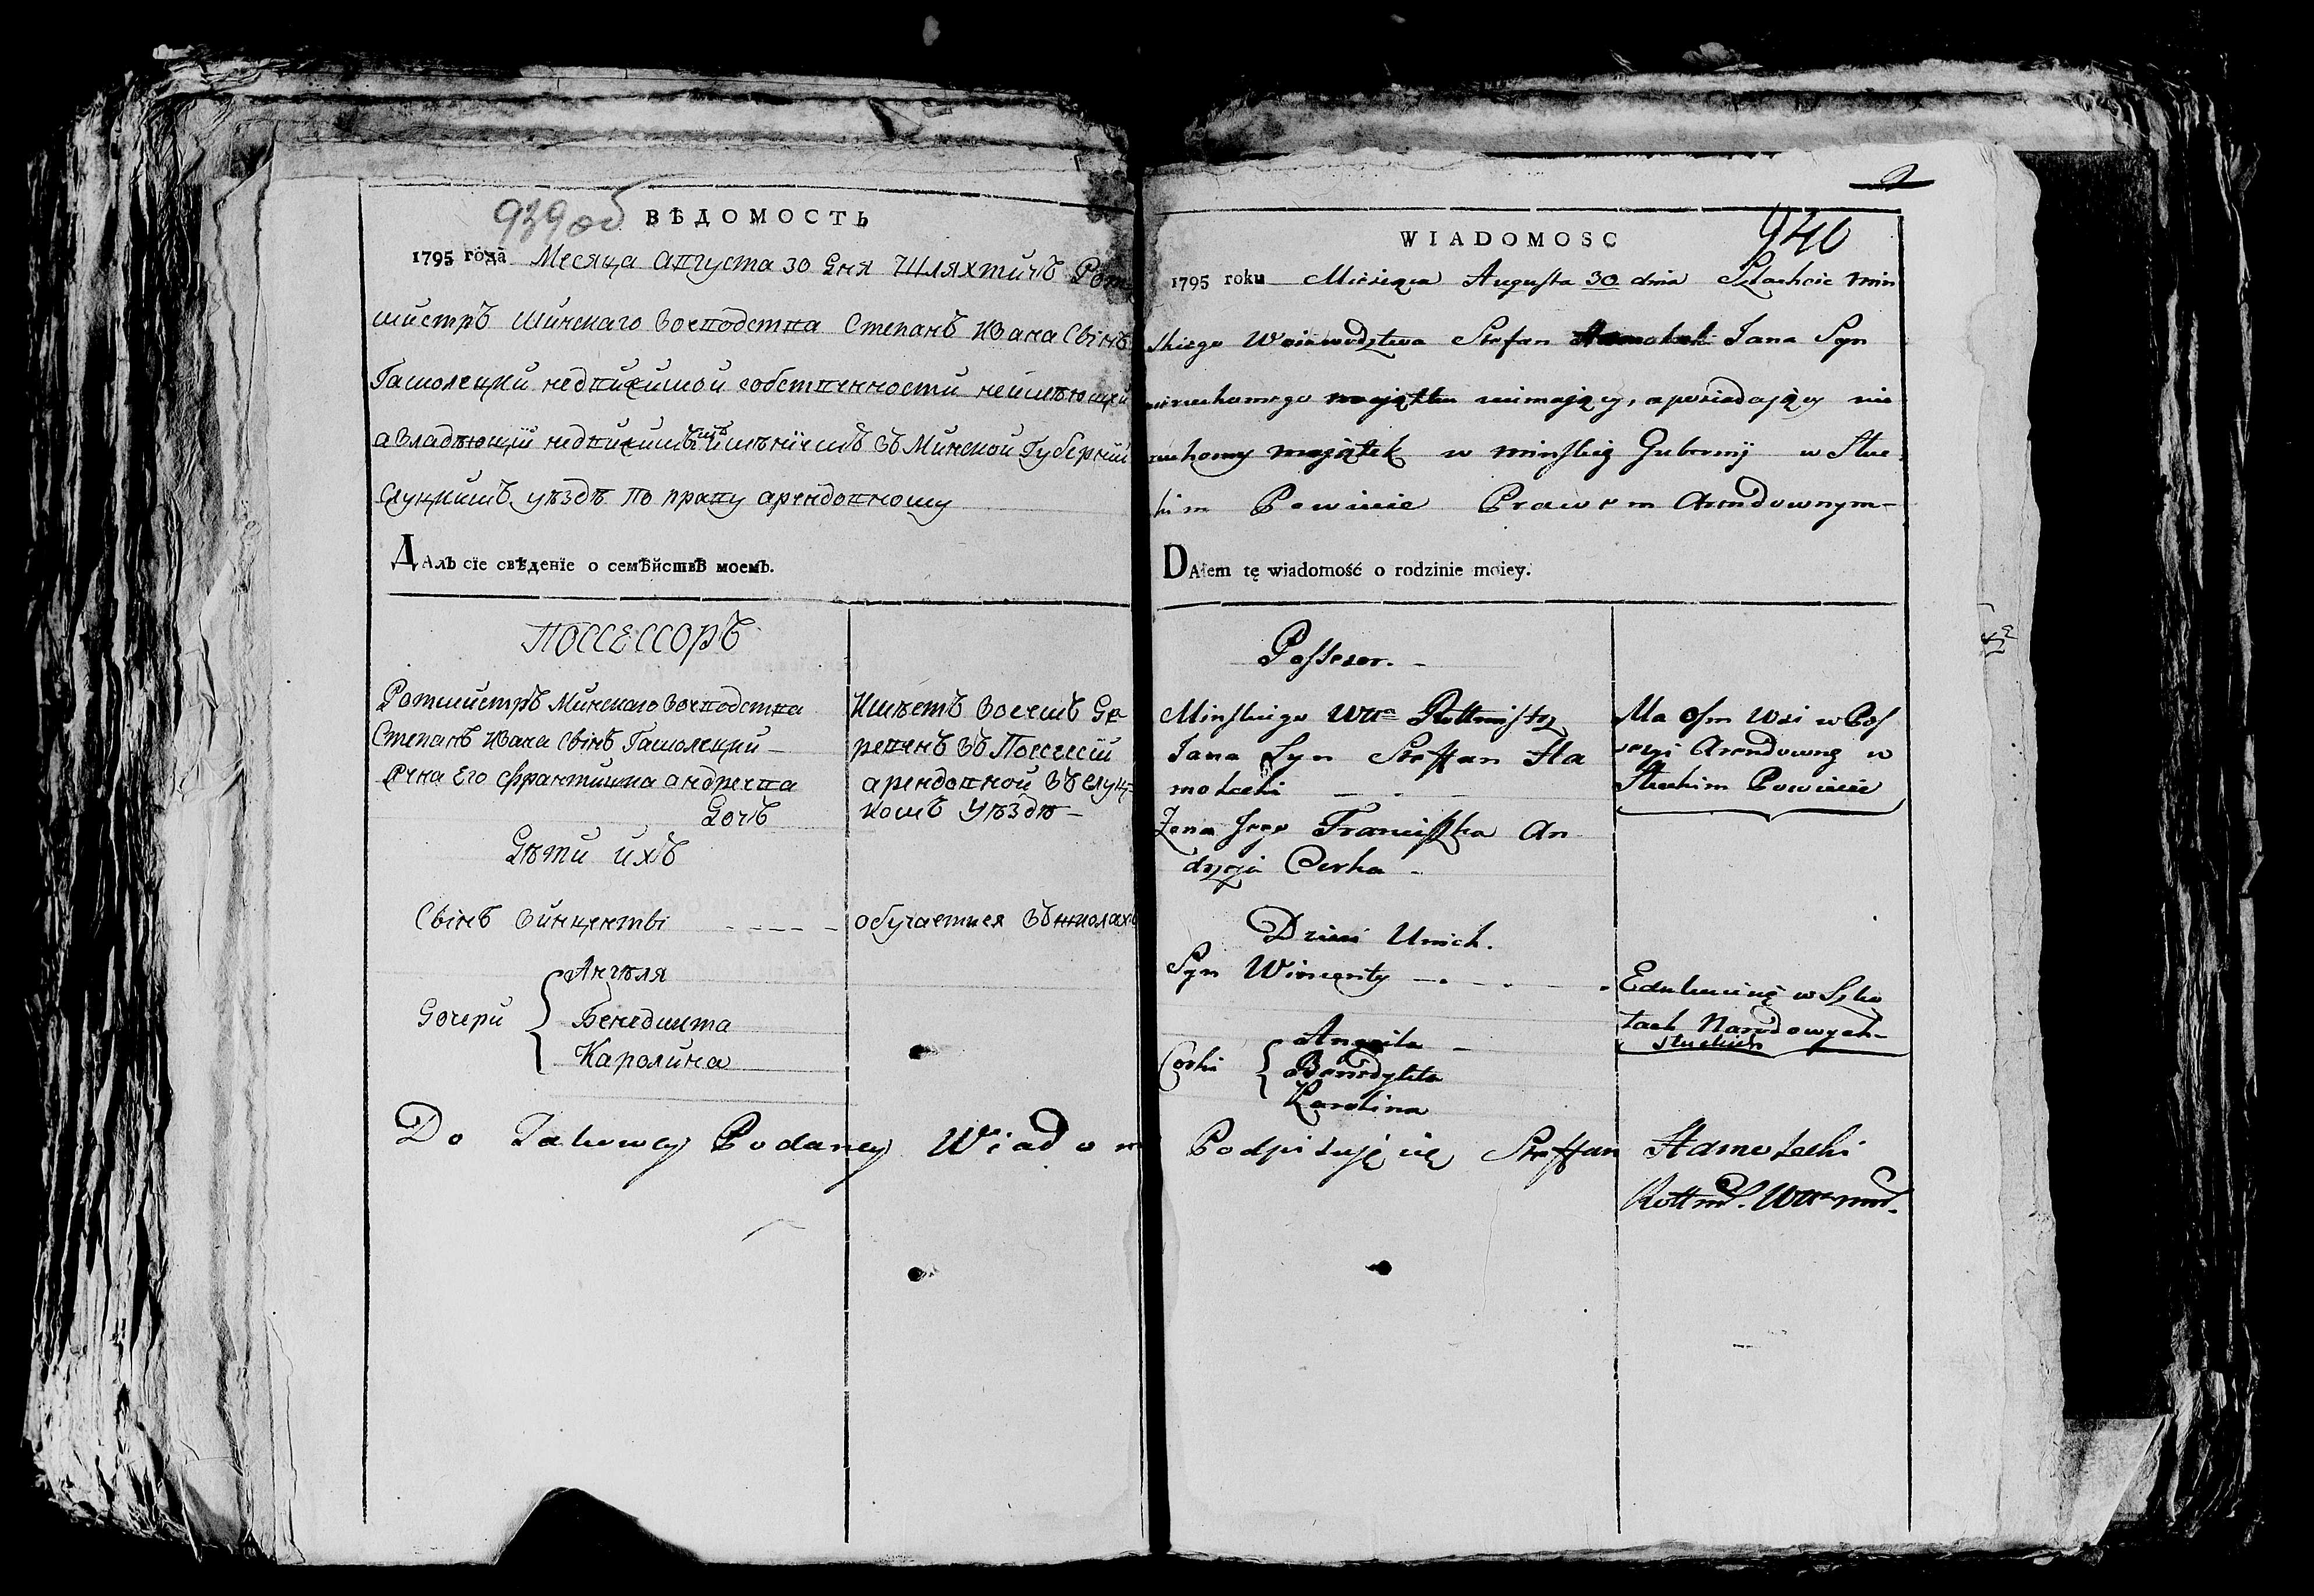 939 об
ВѢДОМОСТЬ
1795 года Месяца Августа 30 дня Шляхтичъ Рот
мистръ Минскаго Воеводства Степанъ Ивана Сынъ
Гамолецки недвижимой собственности неимеющи
а владеющiй недвижимымъ имѣнiемъ въ Минской Губернiи
Слуцкимъ уѣздѣ по праву арендовному
ДАлъ сiе свѣденiе о семѣйствѣ моемъ.
Поссессоръ
Ротмистръ Минскаго Воеводства
Степанъ Ивана Сынъ Гамолецки
Жена Его Франтишка Андреева
Дочь
Имѣетъ восемъ де
ревень въ Поссесiи
арендовной въ Слуц
комъ Уѣздѣ
Дѣти ихъ
Сынъ Винценты
обучается въ школахъ
Дочери
Ангѣля
Бенедикта
Каролина
Do Takowey Podaney Wiadom
940
WIADOMOSC
1795 roku Miesięca Augusta 30 dnia Szlachcic Min
skiego Woiewodztwa Stefan Jana Syn
nieruchomego majątku niemający, a posiadający nie
ruchomy majątek w Minskiey Gubernij w Słuc
kim Powiecie Prawem Arendownym
DAłem tę wiadomość o rodzinie moiey.
Possesor.
Minskiego Wttwa Rottmistrz
Jana Syn Steffan Ha
molecki
Zona Jego Franciszka An
drzeja Corka
Ma osm Wsi w Pos
sesyi Arendowney w
Słuckim Powiecie
Dzieci Onich.
Syn Wincenty
Edukuie się w Szko
łach Narodowych
Słuckich
Corki
Angiela
Benedykta
Karolina
Podpisuję się Steffan Hamolecki
Rottm. Wttwa Min.